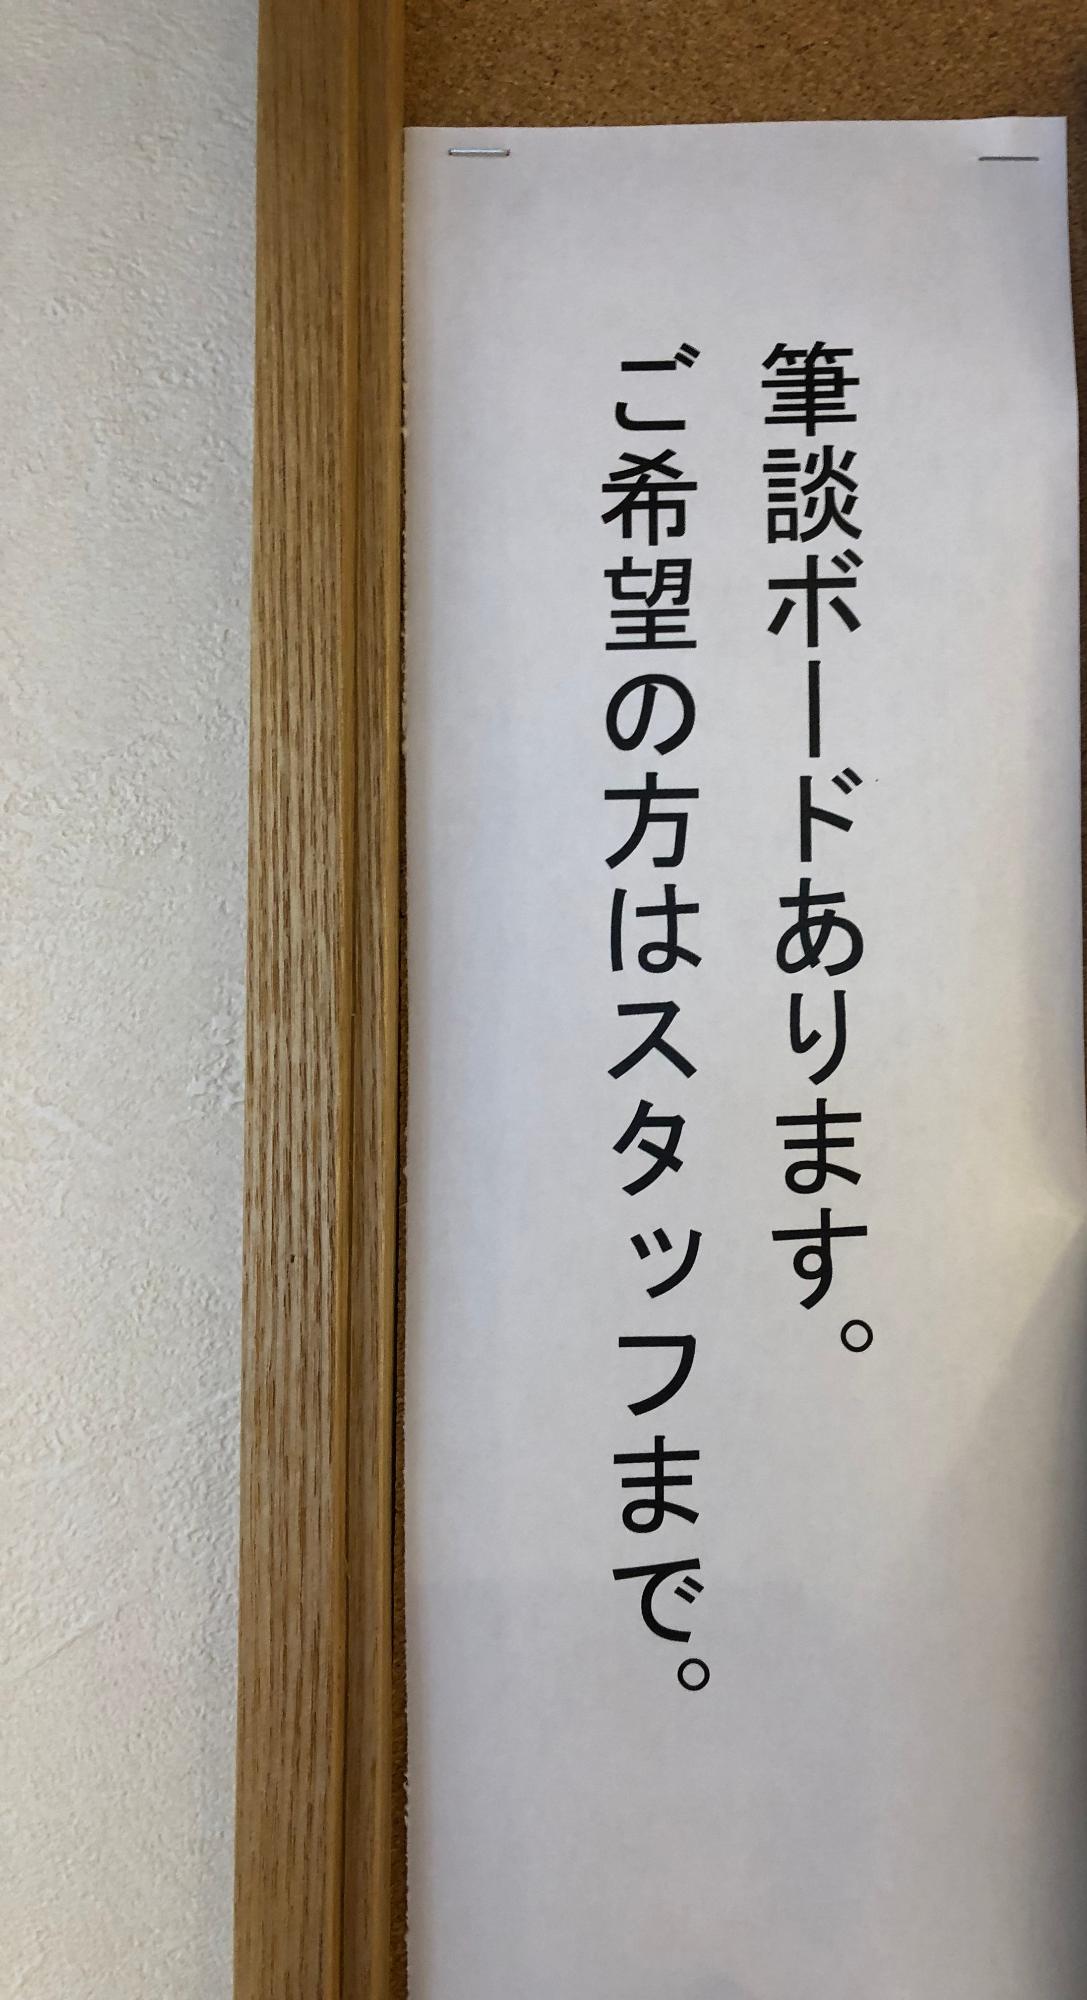 筆談ボードあります。
ご希望の方はスタッフまで。